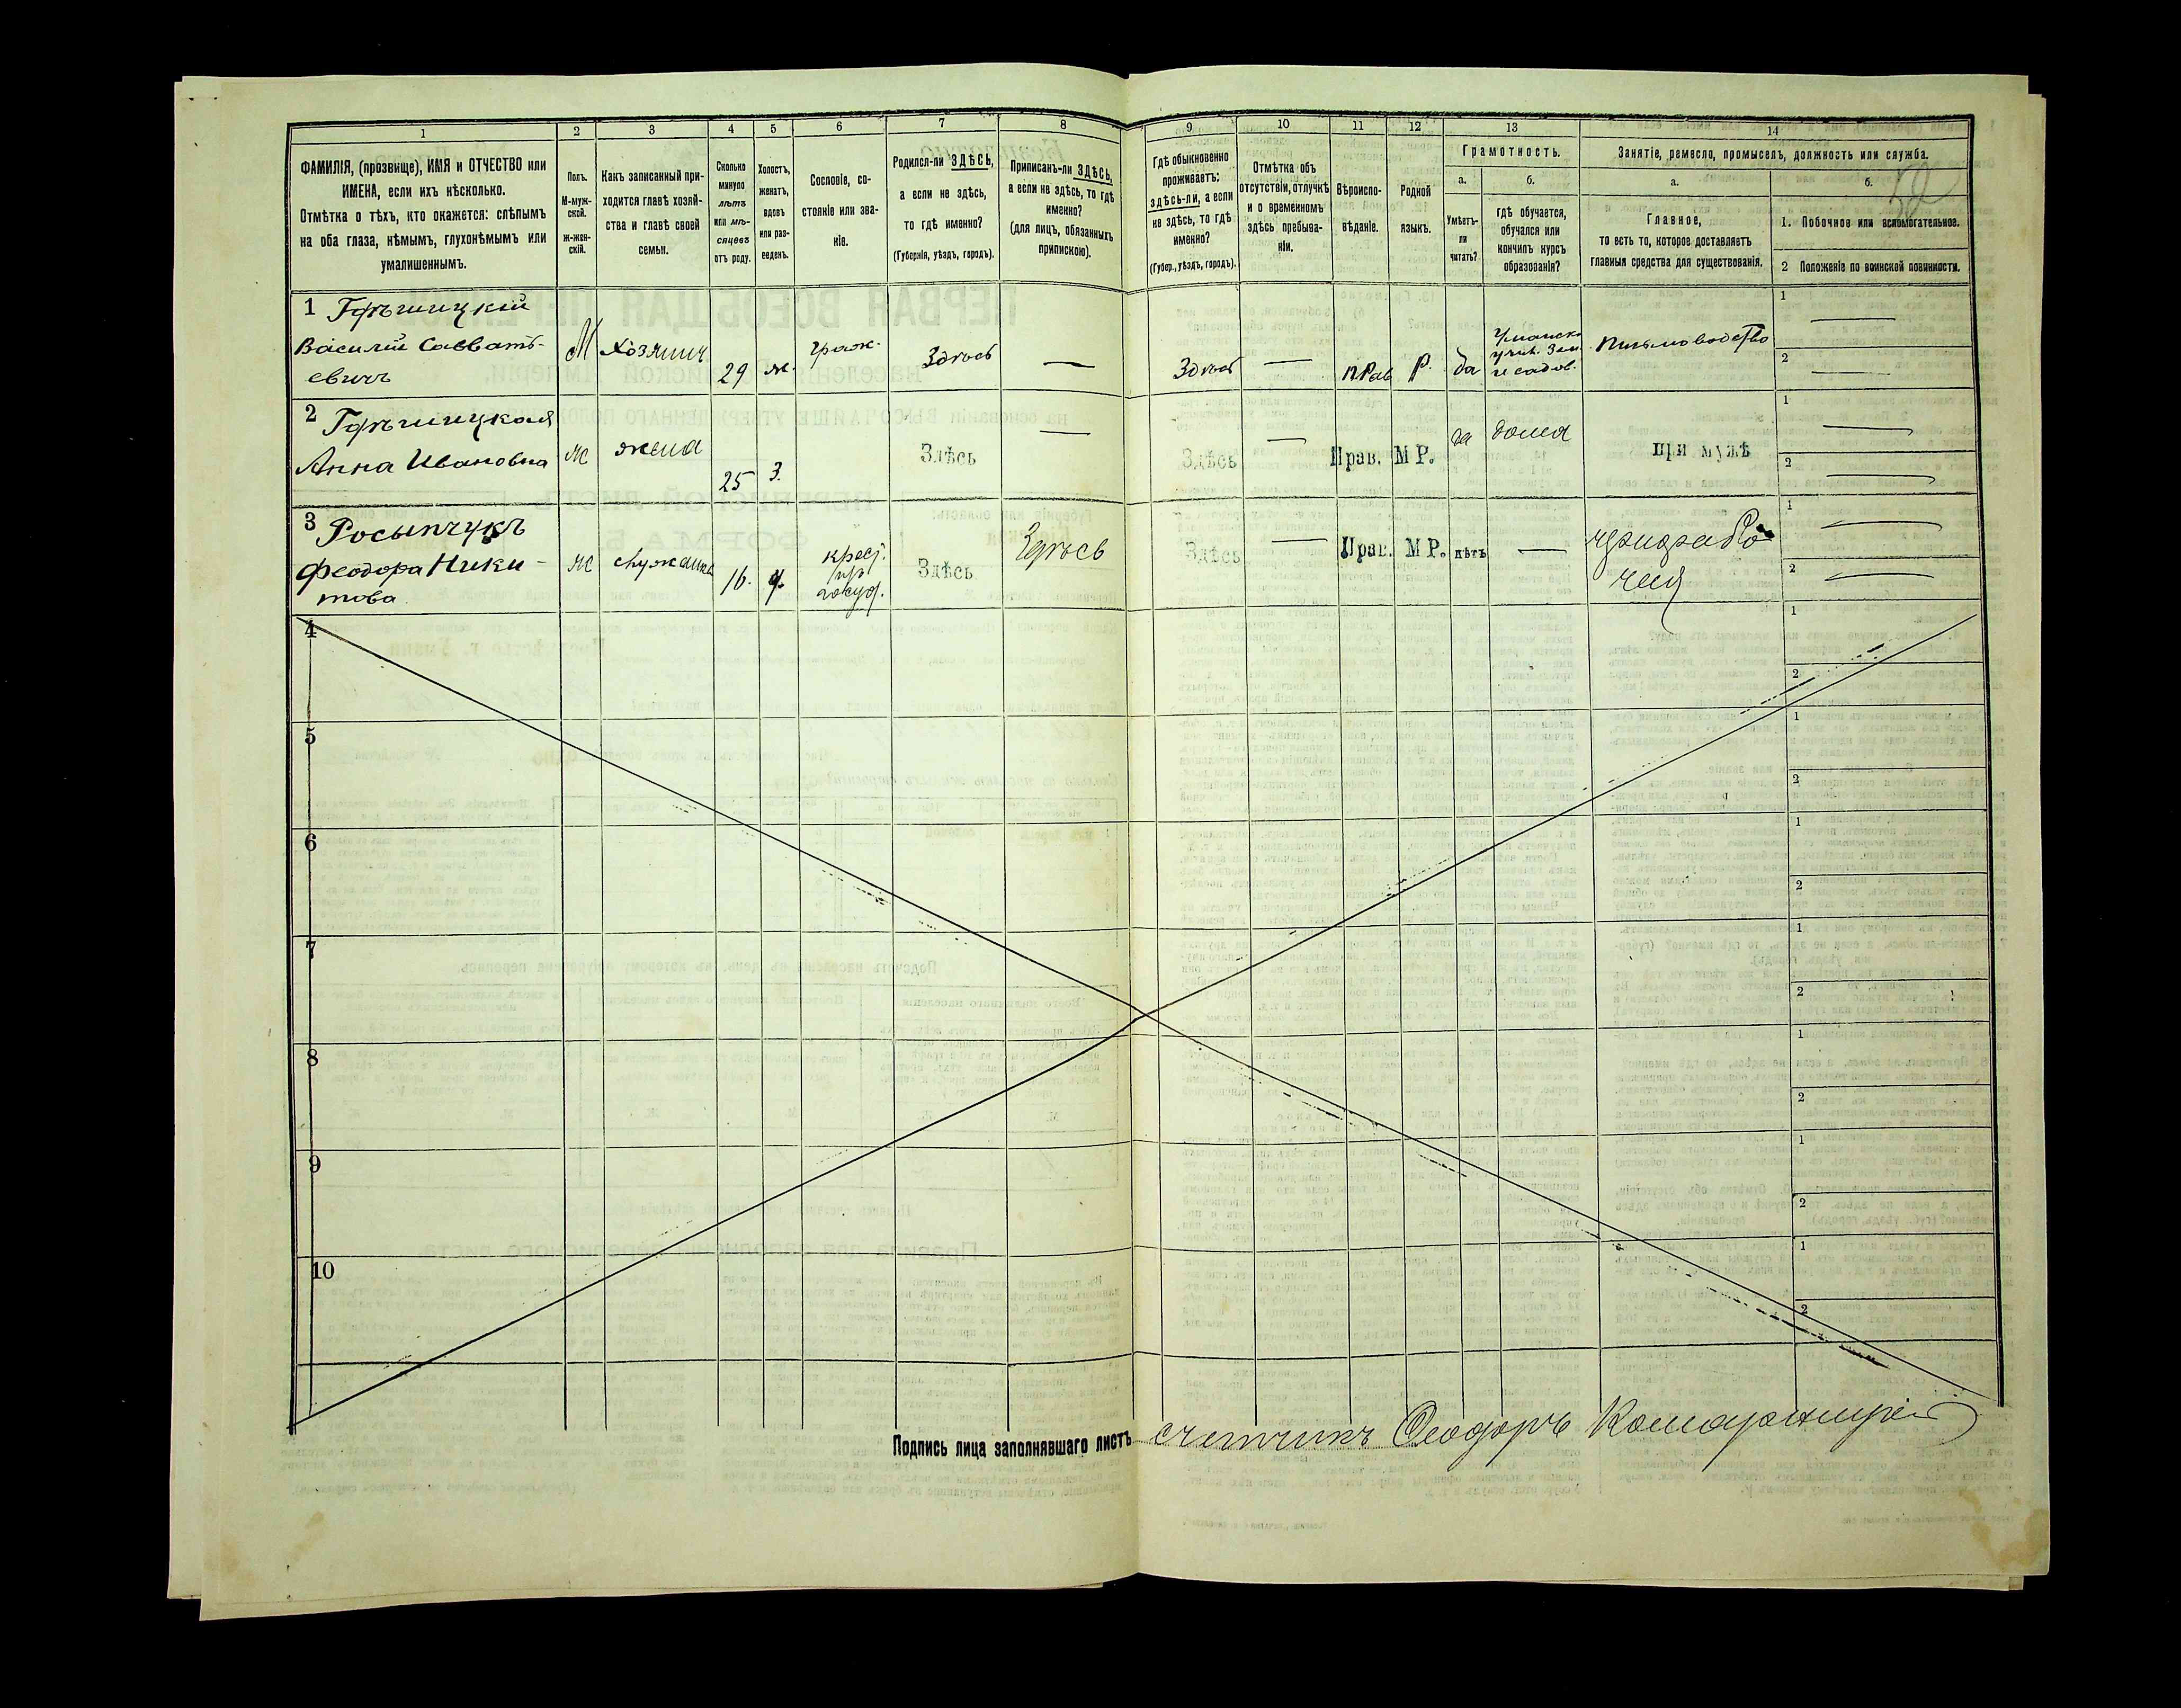 1 2 3 4 5 6 7 8 9 10 11 12 13 14
ФАМИЛІЯ, (прозвище), ИМЯ и ОТЧЕСТВО или
ИМЕНА, если ихъ нѣсколько.
Отмѣтка о тѣхъ, кто окажется: слѣпымъ
на оба глаза, нѣмымъ, глухонѣмымъ или
умалишеннымъ.
Полъ.
М-муж-
ской.
Ж-жен-
скій.
Какъ записанный при-
ходится главѣ хозяй-
ства и главѣ своей
семьи.
Сколько
минуло
лѣтъ
или мѣ-
сяцевъ
отъ роду.
Холостъ,
женатъ,
вдовъ
или раз-
веденъ.
Сословіе, со-
стояніе или зва-
ніе.
Родился-ли ЗДѢСЬ,
а если не здѣсь,
то гдѣ именно?
(Губернія, уѣздъ, городъ).
Приписанъ-ли ЗДѢСЬ,
а если не здѣсь, то гдѣ
именно?
(для лицъ, обязанныхъ
припискою).
Гдѣ обыкновенно
проживаетъ:
здѣсь-ли, а если
не здѣсь, то гдѣ
именно?
(Губер., уѣздъ, городъ).
Отмѣтка объ
отсутствіи, отлучкѣ
и о временномъ
здѣсь пребыва-
ніи.
Вѣроиспо-
вѣданіе.
Родной
языкъ.
Грамотность.
а.
Умѣетъ-
ли
читать?
б.
гдѣ обучается,
обучался или
кончилъ курсъ
образованія?
Занятіе, ремесло, промыселъ, должность или служба.
а.
Главное,
то есть то, которое доставляетъ
главныя средства для существованія.
б.
1. Побочное или вспомогательное.
2 Положеніе по воинской повинности.
1
Василій Савватъ-
евичъ
М Хозяинъ 29 ж. граж. Здѣсь — Здѣсь — прав р. да
и садов.
Письмоводство
1 —
2 —
2
Анна Ивановна
ж жена 25 З. Здѣсь — Здѣсь — Прав. МР. да дома при мужѣ
1 —
2 —
3 Росыпчукъ
Феодора Ники-
това
ж служанка 16. д.
крест.
Здѣсь Здѣсь Здѣсь — Прав. МР. нѣтъ —
1 —
2 —
4
1
2
5
1
2
6
1
2
7
1
2
8
1
2
9
1
2
10
1
2
Подпись лица заполнявшаго листъ счетчикъ Феодоръ